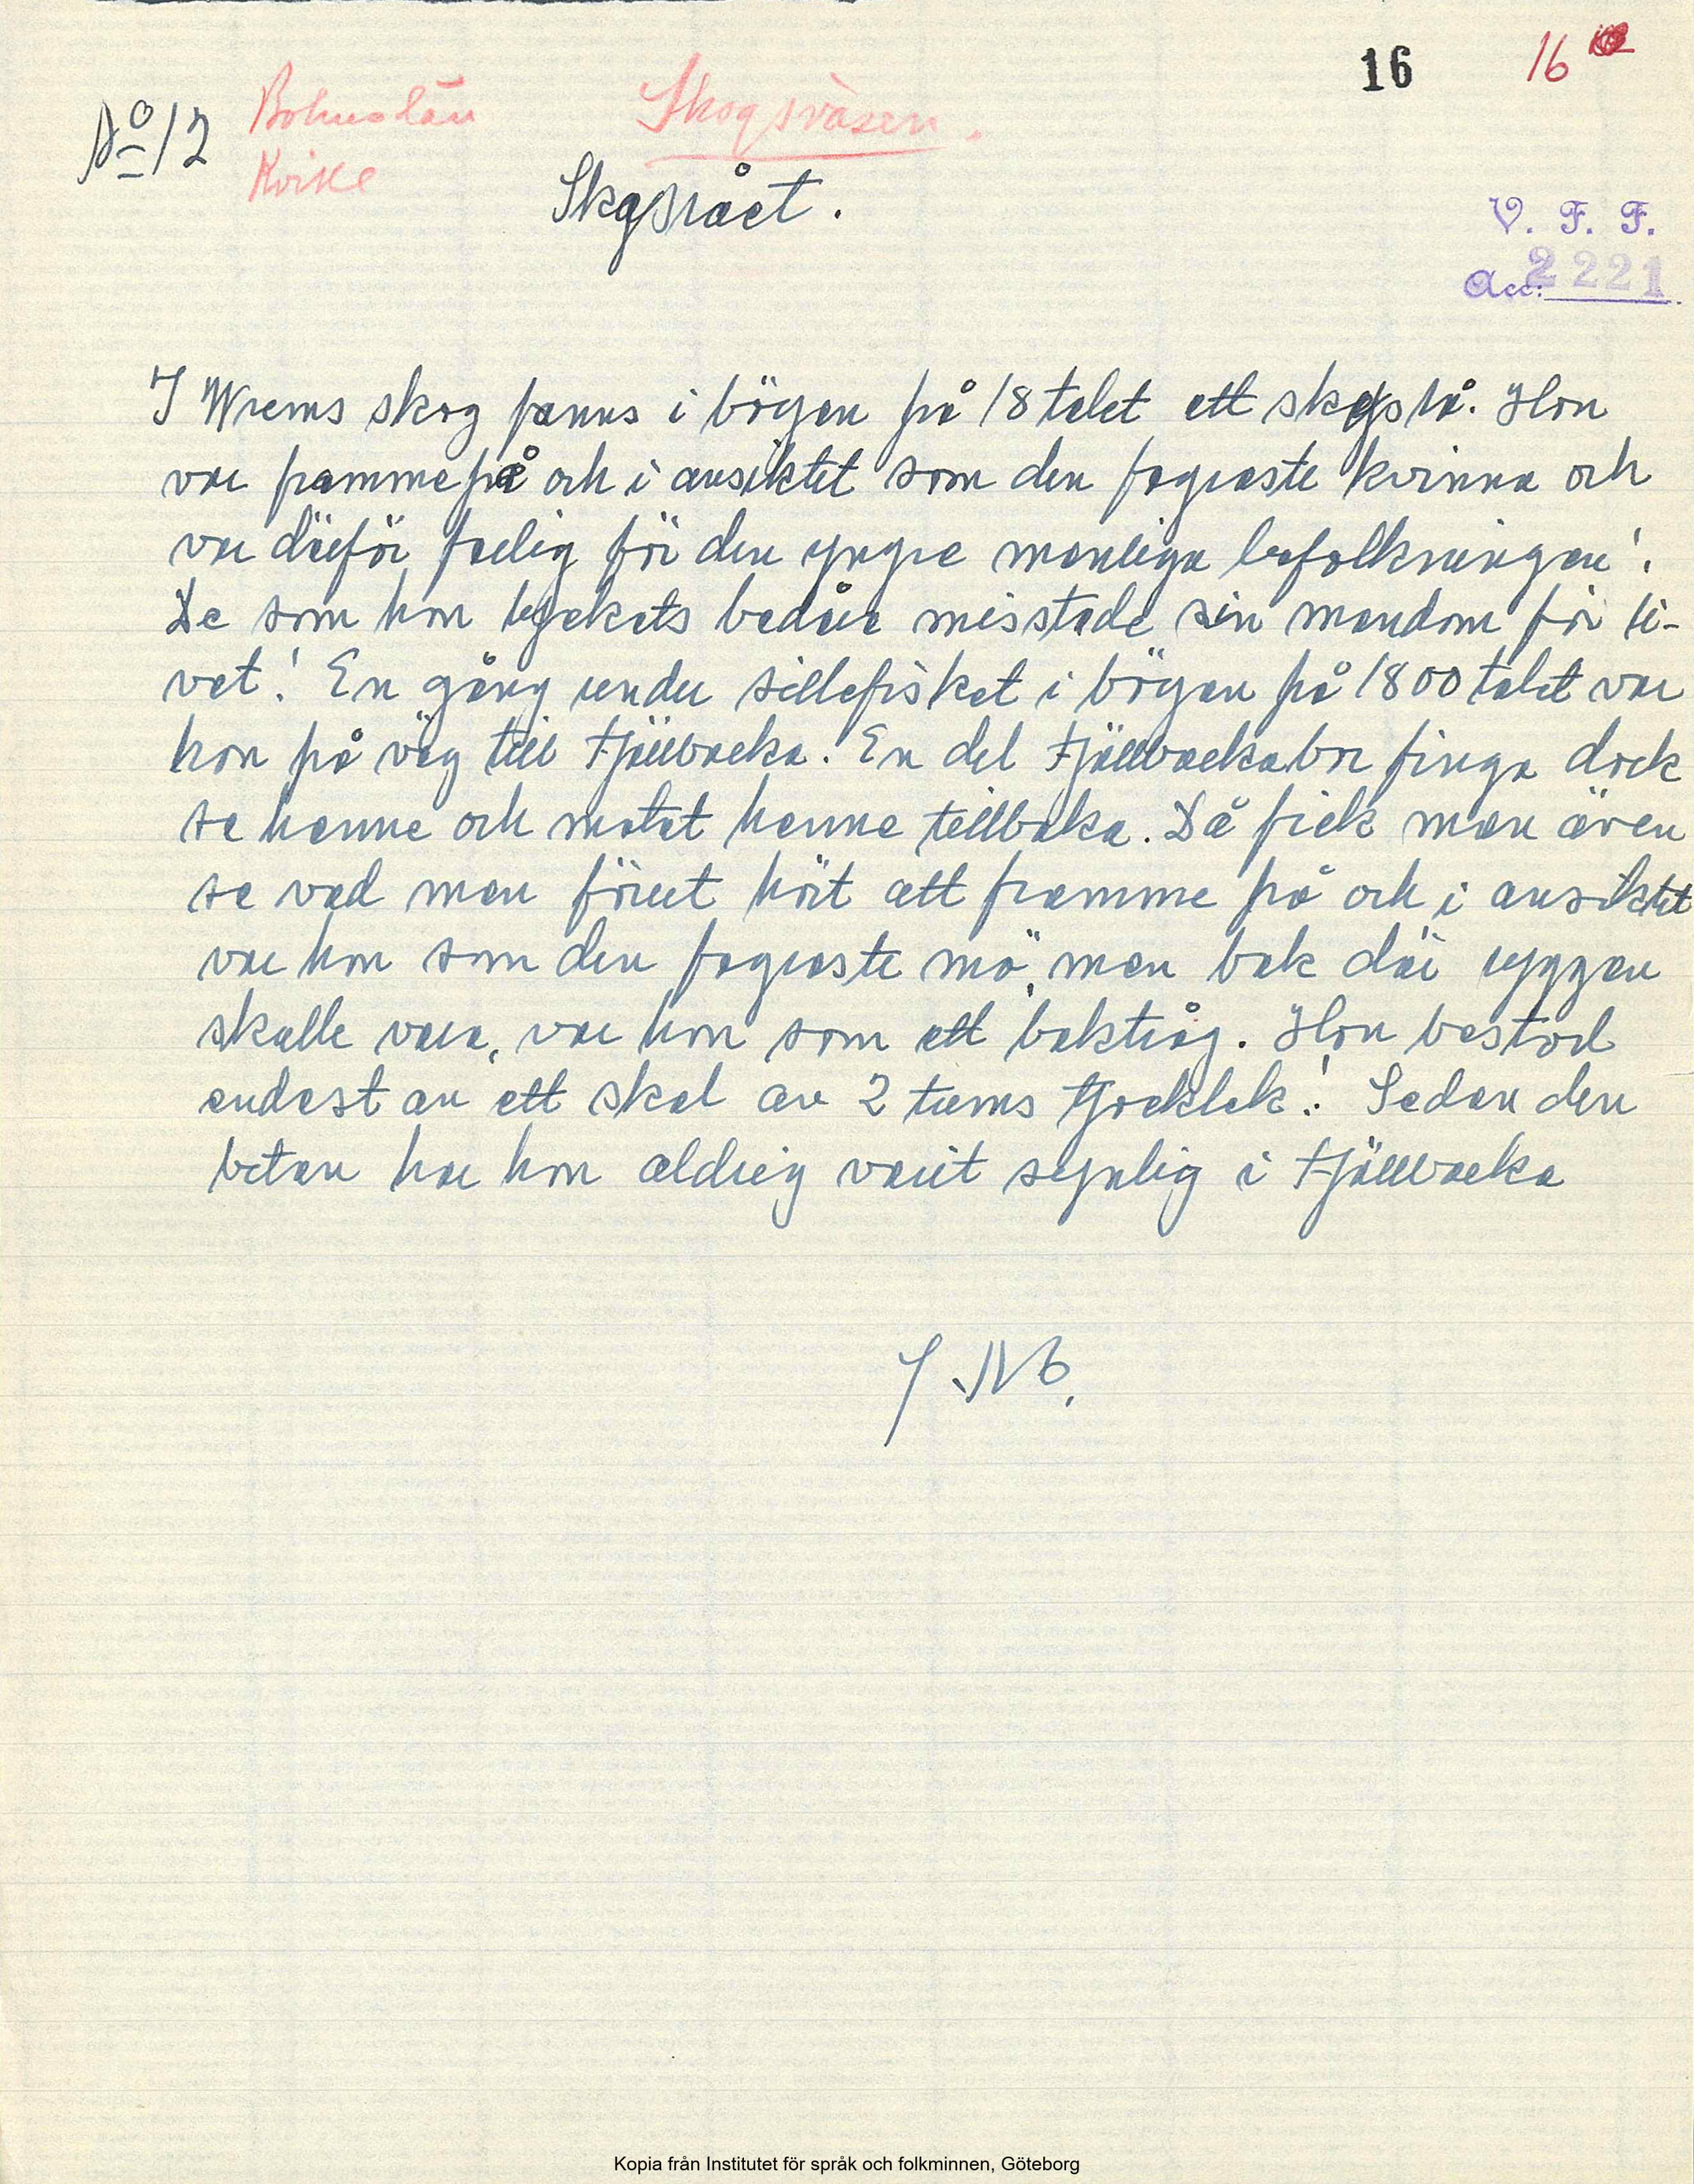 16 16
No 12 Bohuslän Skogsväsen.
Kville
Skogsrået.
V. F. F.
Acc: 2221
I Wrems skog fanns i början på 18 talet ett skogsrå. Hon
var framme på och i ansiktet som den fagraste kvinna och
var därför farlig för den yngre manliga befolkningen!.
De som hon lyckats bedåra misstade sin mandom för li-
vet! En gång under sillefisket i början på 1800 talet var
hon på väg till Fjällbacka. En del Fjällbackabor finga dock
se henne och motat henne tillbaka. Då fick man även
se vad man förut hört att framme på och i ansiktet
var hon som den fagraste mö, men bak där ryggen
skulle vara, var hon som ett baktråg. Hon bestod
endast av ett skal av 2 tums tjocklek!. Sedan den
betan har hon aldrig varit synlig i Fjällbacka
Kopia från Institutet för språk och folkminnen, Göteborg